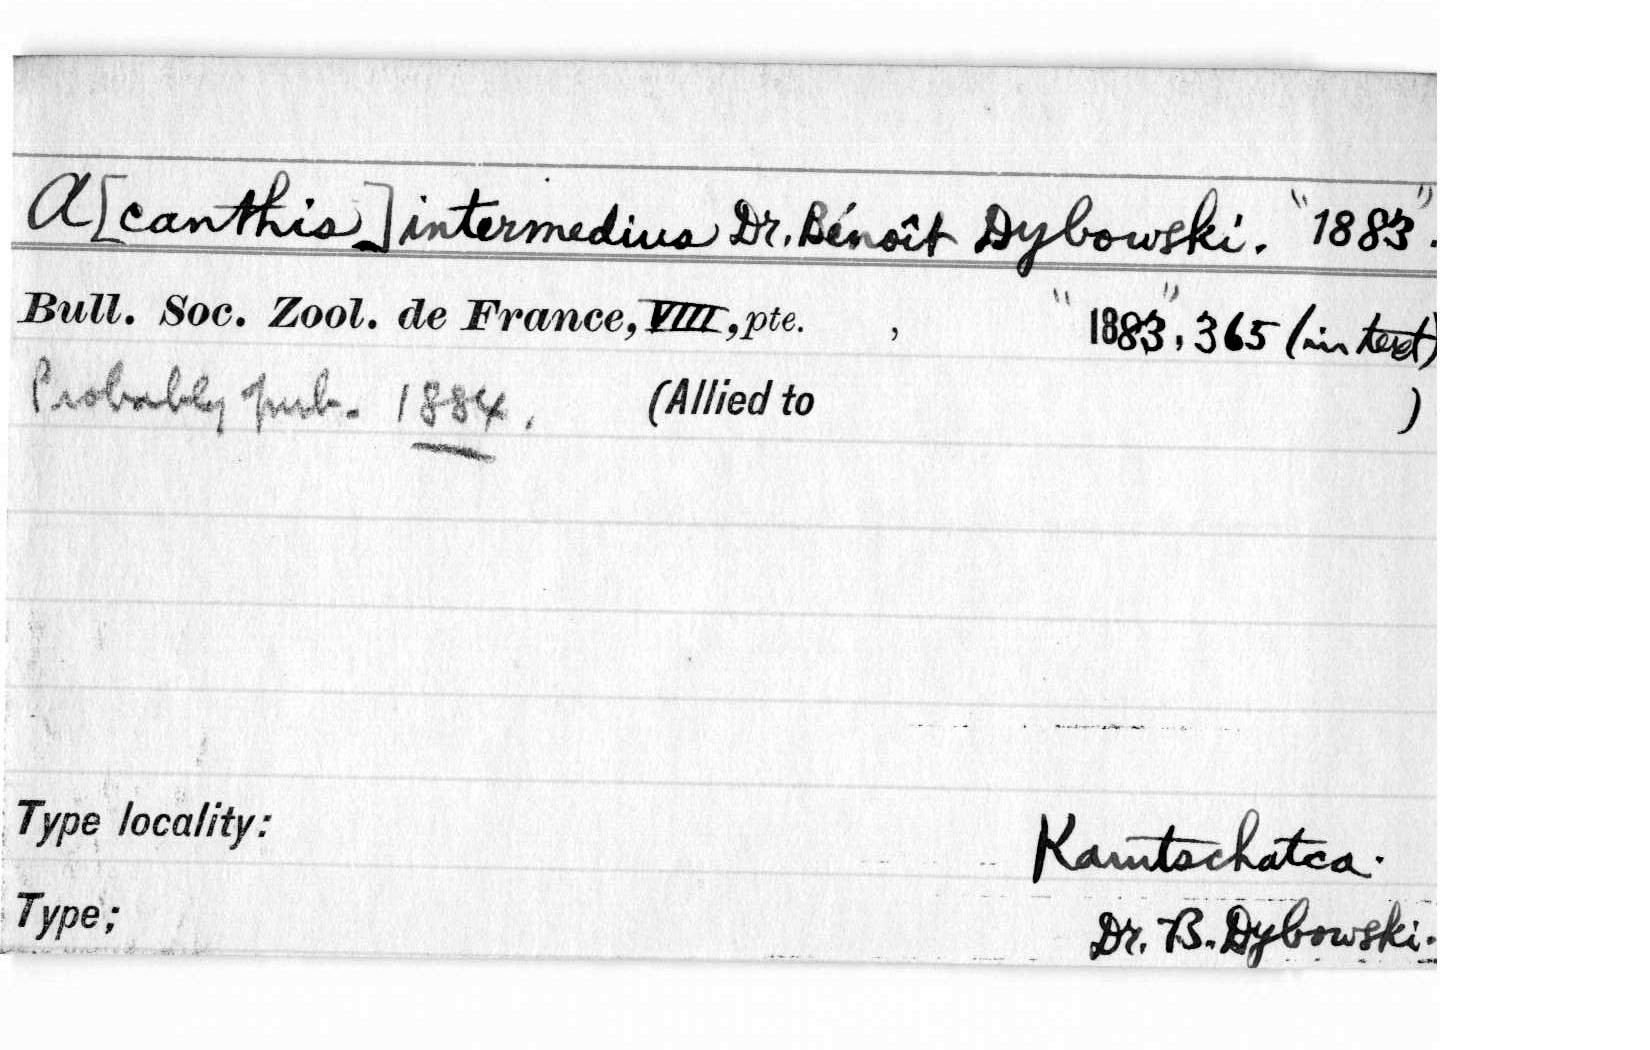 A[canthis] intermedius Dr. Bénoît Dybowski. "1883".
Bull. Soc. Zool. de France, VIII, pte. , "1883", 365 (in text)
Probably pub. 1884. (Allied to )
Type locality: Kamtschatca.
Type; Dr. B. Dybowski.